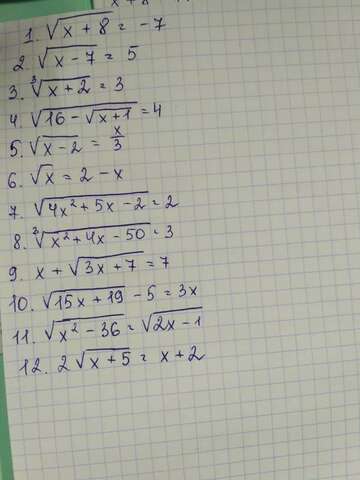 1. √(x + 8) = -7
2. √(x - 7) = 5
3. ∛(x + 2) = 3
4. √(16 - √(x + 1)) = 4
5. √(x - 2) = x/3
6. √x = 2 - x
7. √(4x² + 5x - 2) = 2
8. ∛(x² + 4x - 50) = 3
9. x + √(3x + 7) = 7
10. √(15x + 19) - 5 = 3x
11. √(x² - 36) = √(2x - 1)
12. 2√(x + 5) = x + 2